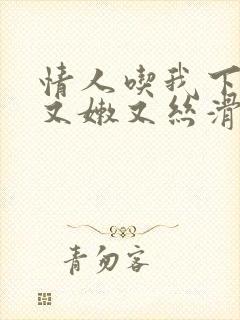 情人喫我下
又嫩又丝滑
青勿客